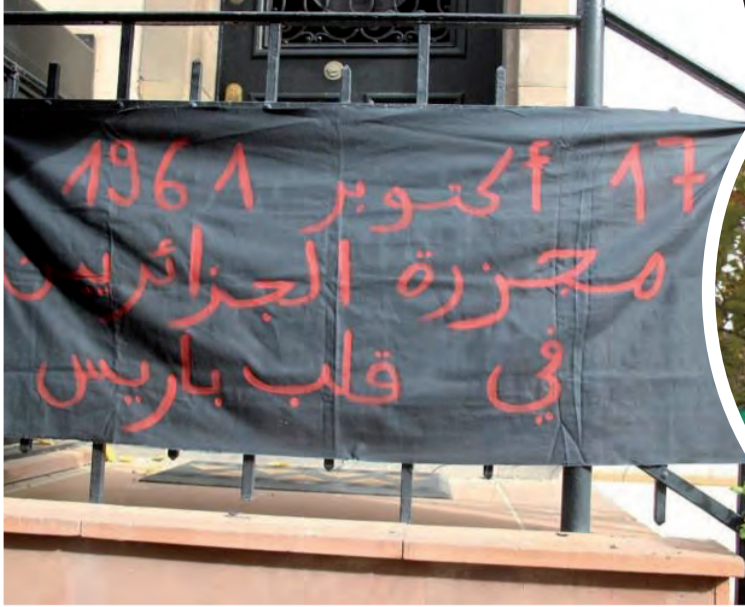 17 أكتوبر 1961
مجزرة الجزائريين
في قلب باريس